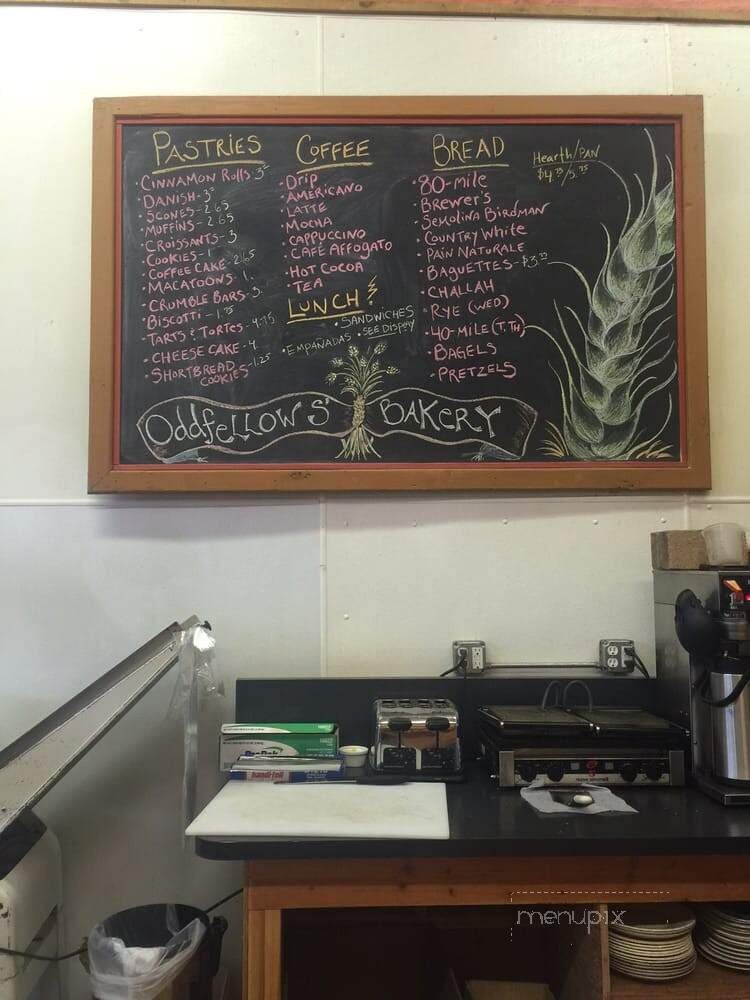 PASTRIES
• CINNAMON ROLLS - 3
• DANISH - 3
• SCONES - 2.65
• MUFFINS - 2.65
• CROISSANTS - 3
• COOKIES - 1
• COFFEE CAKE - 2.65
• MACATOONS - 1.
• CRUMBLE BARS - 3.
• BISCOTTI - 1.75
• TARTS & TORTES - 4.75
• CHEESE CAKE - 4
• SHORTBREAD COOKIES - 1.25
COFFEE
• DRIP
• AMERICANO
• LATTE
• MOCHA
• CAPPUCCINO
• CAFÉ AFFOGATO
• HOT COCOA
• TEA
LUNCH!
• SANDWICHES
• EMPAÑADAS • SEE DISPLAY
BREAD
Hearth/PAN
$4.75/5.75
• 80-MILE
• BREWERS
• SEMOLINA BIRDMAN
• COUNTRY WHITE
• PAIN NATURALE
• BAGUETTES - $3.75
• CHALLAH
• RYE (WED)
• 40-MILE (T, TH)
• BAGELS
• PRETZELS
OddfeLLOWS' BAKERY
handi-foil
menupix